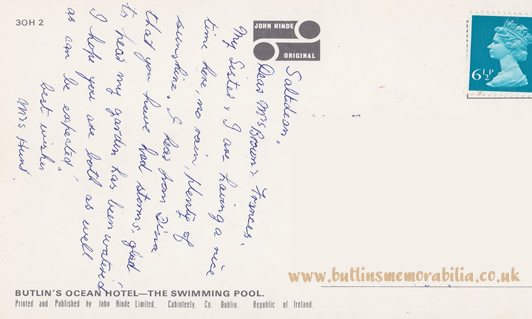 3OH 2
JOHN HINDE
ORIGINAL
6½P
Saltdean.
Dear Mrs Brown & Frances,
My Sister & I are having a nice
time here, no rain, plenty of
sunshine. I hear from Dina
that you have had storms, glad
to hear my garden has been watered
I hope you are both as well
as can be expected,
best wishes
Mrs Hunt.
www.butlinsmemorabilia.co.uk
BUTLIN'S OCEAN HOTEL—THE SWIMMING POOL.
Printed and Published by John Hinde Limited, Cabinteely, Co. Dublin, Republic of Ireland.